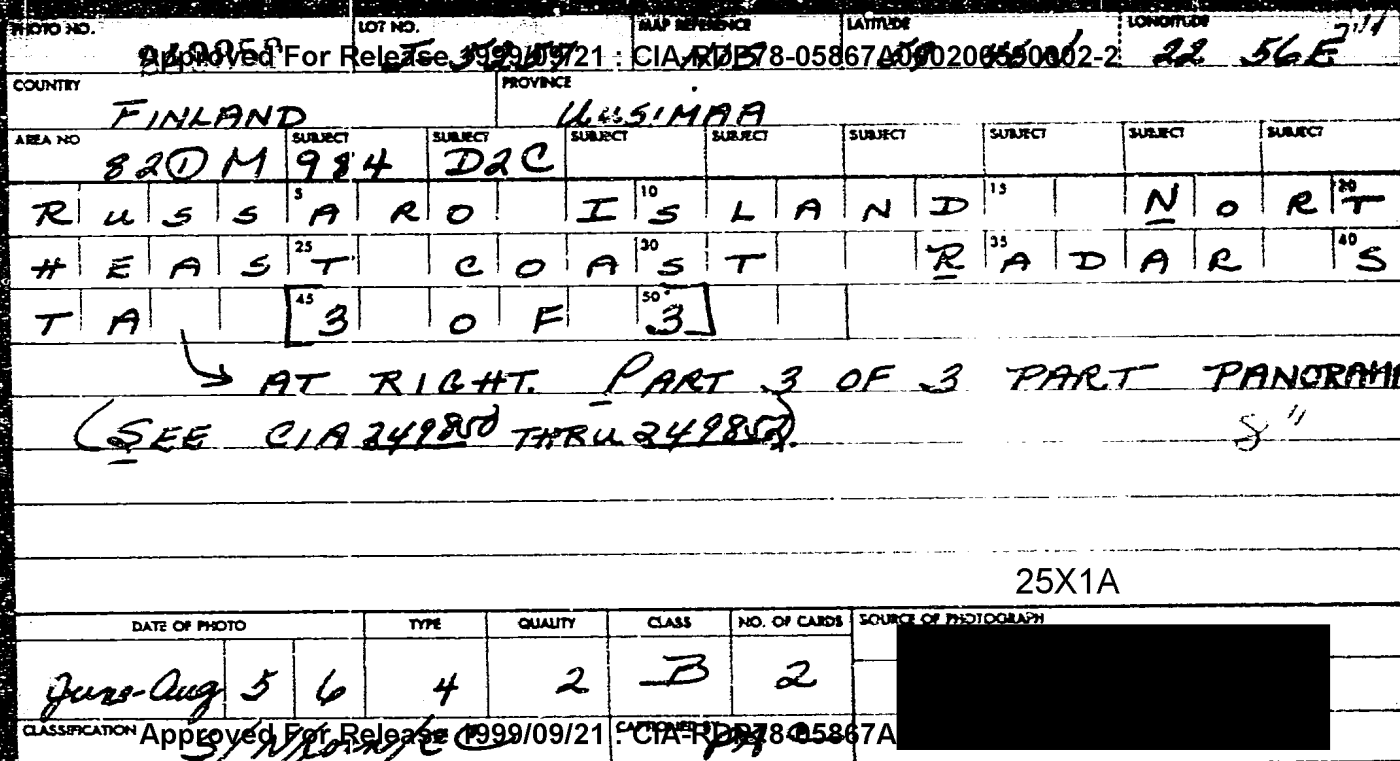 PHOTO NO. LOT NO. MAP REFERENCE LATITUDE LONGITUDE
Approved For Release 1999/09/21 : CIA-RDP78-05867A000200650002-2 22 56E
COUNTRY PROVINCE
FINLAND UUSIMAA
AREA NO SUBJECT SUBJECT SUBJECT SUBJECT SUBJECT SUBJECT SUBJECT SUBJECT
82①M 984 D2C
5 10 15 20
RUSSARO ISLAND NORT
25 30 35 40
HEAST COAST RADAR S
45 50
TA [3 OF 3]
AT RIGHT. PART 3 OF 3 PART PANORAMA
(SEE CIA 249850 THRU 249852).
8"
25X1A
DATE OF PHOTO TYPE QUALITY CLASS NO. OF CARDS SOURCE OF PHOTOGRAPH
June-Aug 56 4 2 B 2
CLASSIFICATION CAPTIONED BY
Approved For Release 1999/09/21 : CIA-RDP78-05867A